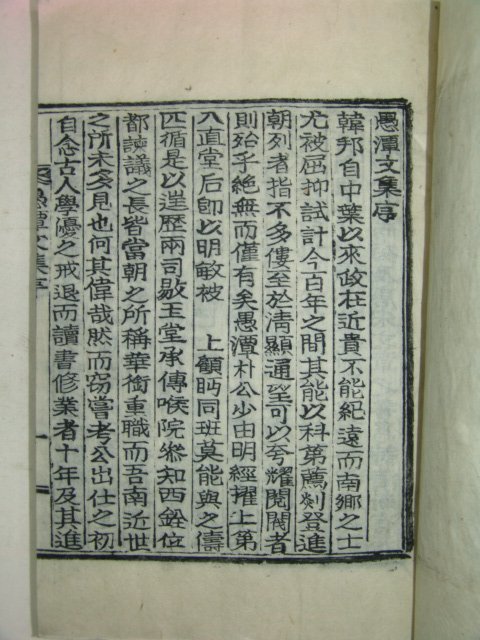 愚潭文集序
韓邦自中葉以來政在近貴不能紀遠而南鄉之士
尤被屈抑試計今百年之間其能以科第薦剡登進
朝列者指不多僂至於淸顯通望可以夸耀閱閥者
則殆乎絶無而僅有矣愚潭朴公少由明經擢上第
入直堂后卽以明敏被 上顧眄同班莫能與之儔
匹循是以遑歷兩司敭玉堂承傳喉院叅知西銓位
都諫議之長皆當朝之所稱華銜重職而吾南近世
之所未多見也何其偉哉然而窃嘗考公出仕之初
自念古人學優之戒退而讀書修業者十年及其進
愚潭文集序
一